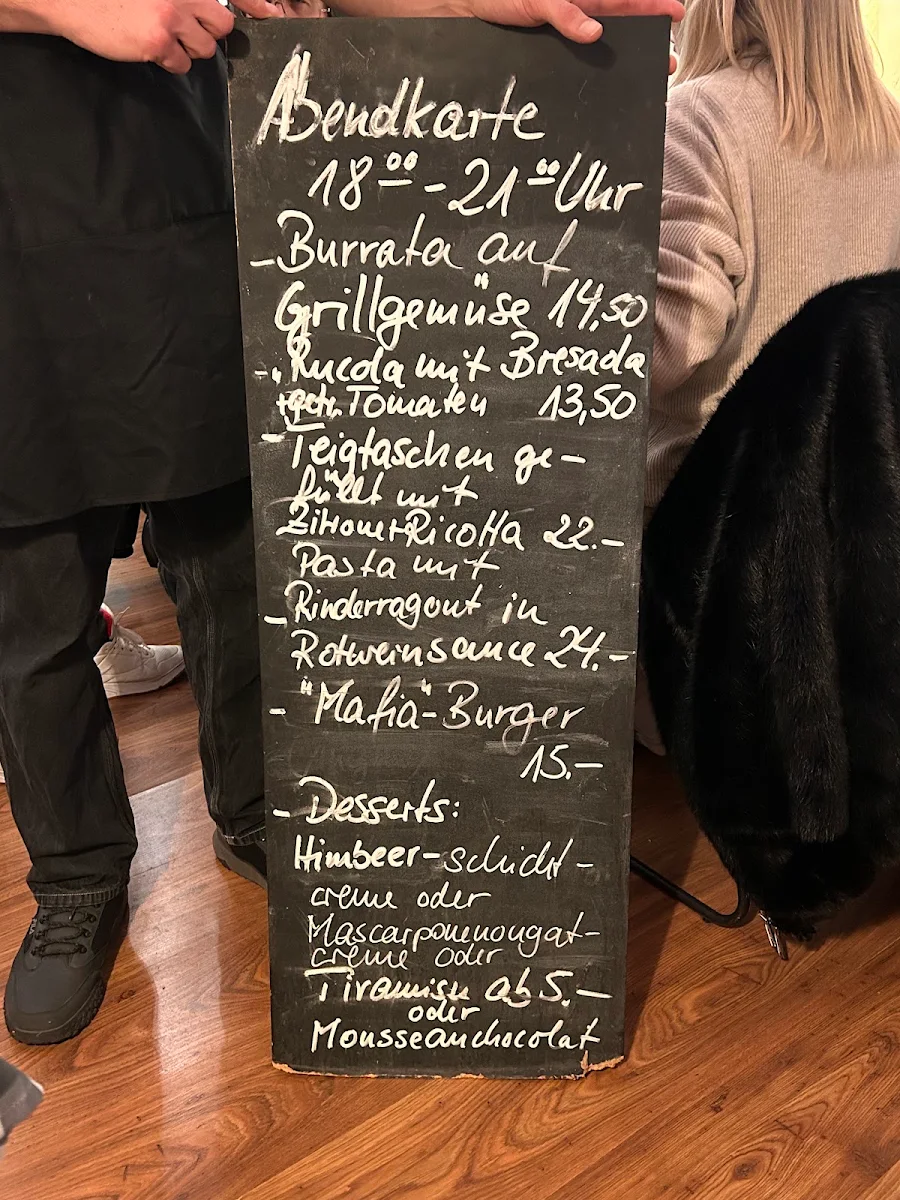 Abendkarte
18⁰⁰ - 21⁰⁰ Uhr
- Burrata auf
Grillgemüse 14,50
- Rucola mit Bresada
+ getr. Tomaten 13,50
- Teigtaschen ge-
füllt mit
Zitrone+Ricotta 22.-
Pasta mit
- Rinderragout in
Rotweinsauce 24.-
- "Mafia"-Burger
15.-
- Desserts:
Himbeer-schicht-
creme oder
Mascarponenougat-
creme oder
Tiramisu ab 5.-
oder
Mousseauchocolat